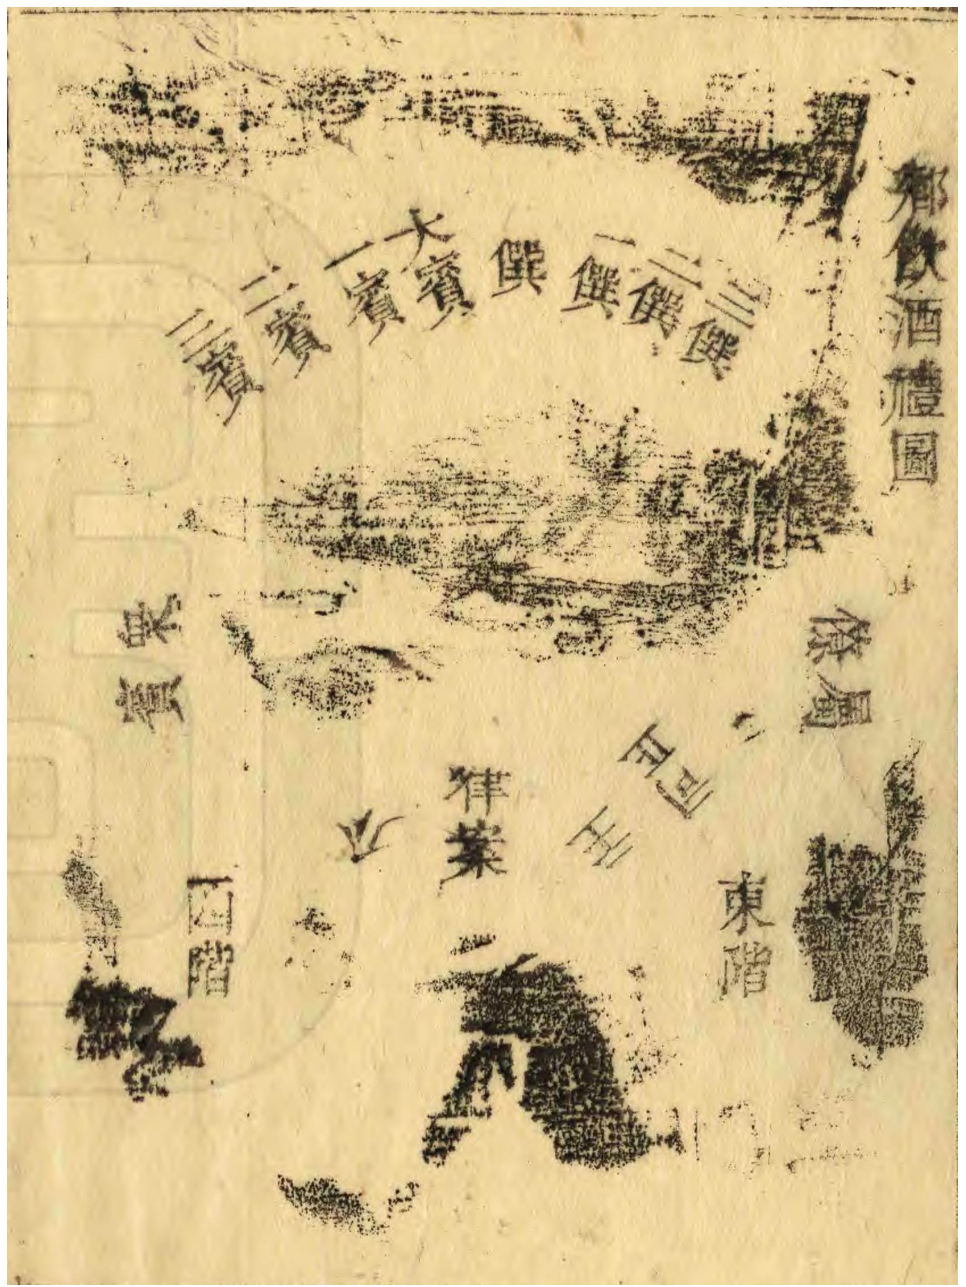 鄉飲酒禮圖
三僎
二僎
一僎
僎
大賓
一賓
二賓
三賓
僚屬
衆賓
司正
主
律案
介
東階
西階